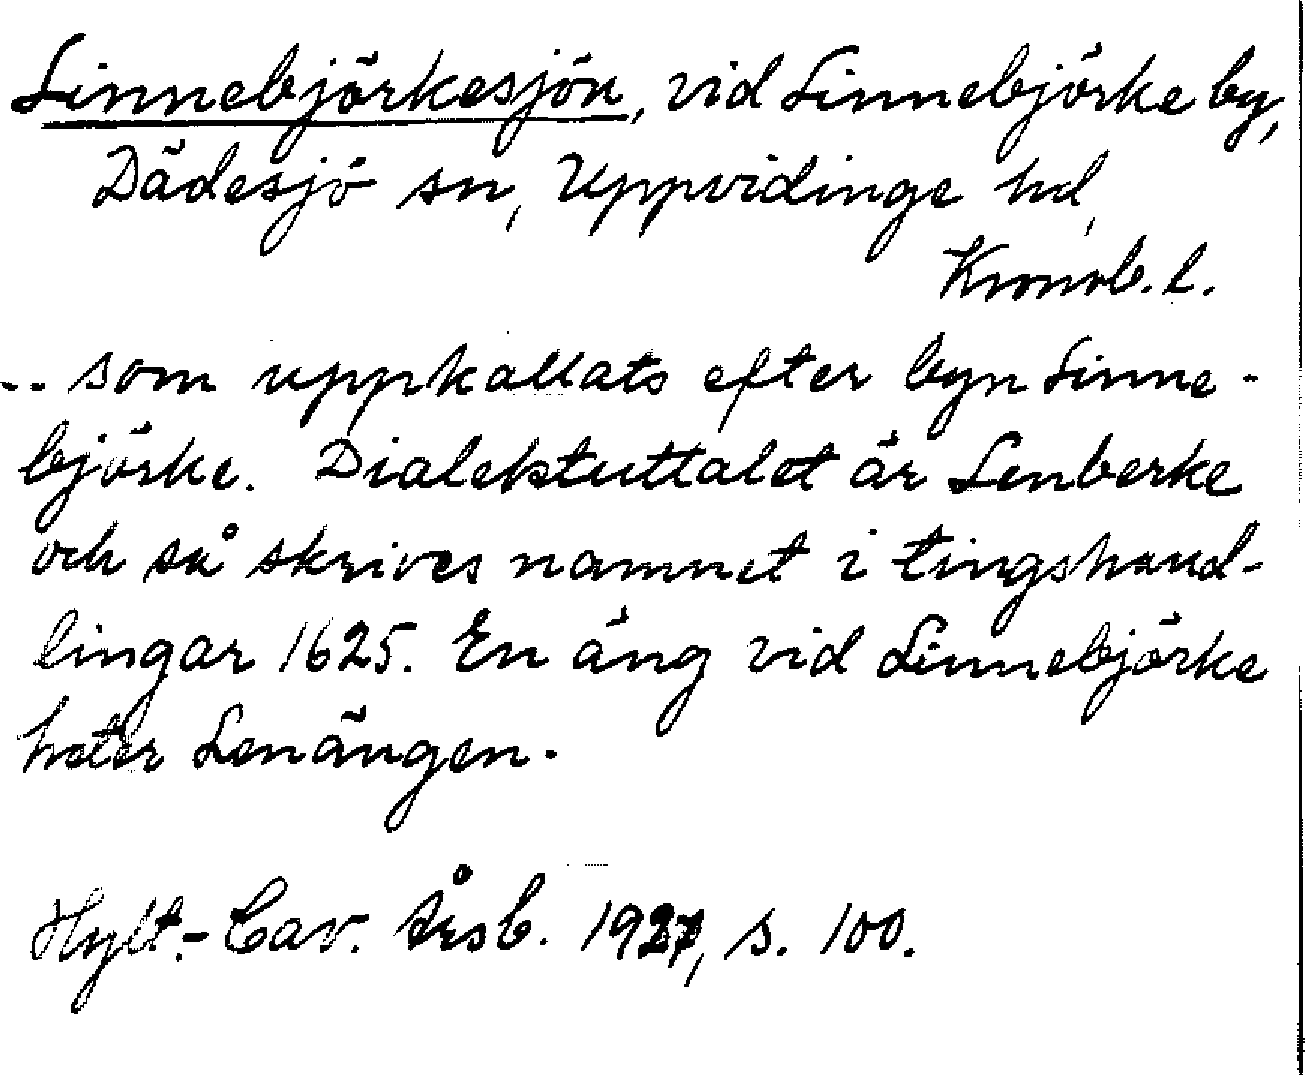 Linnebjörkesjön, vid Linnebjörke by,
Dädesjö sn, Uppvidinge hd,
Kronob. l.
.. som uppkallats efter byn Linne-
björke. Dialektuttalet är Lenberke
och så skrives namnet i tingshand-
lingar 1625. En äng vid Linnebjörke
heter Lenängen.
Hylt.-Cav. Årsb. 1927, s. 100.